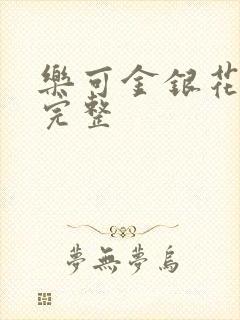 樂可金銀花
完整
夢無夢烏